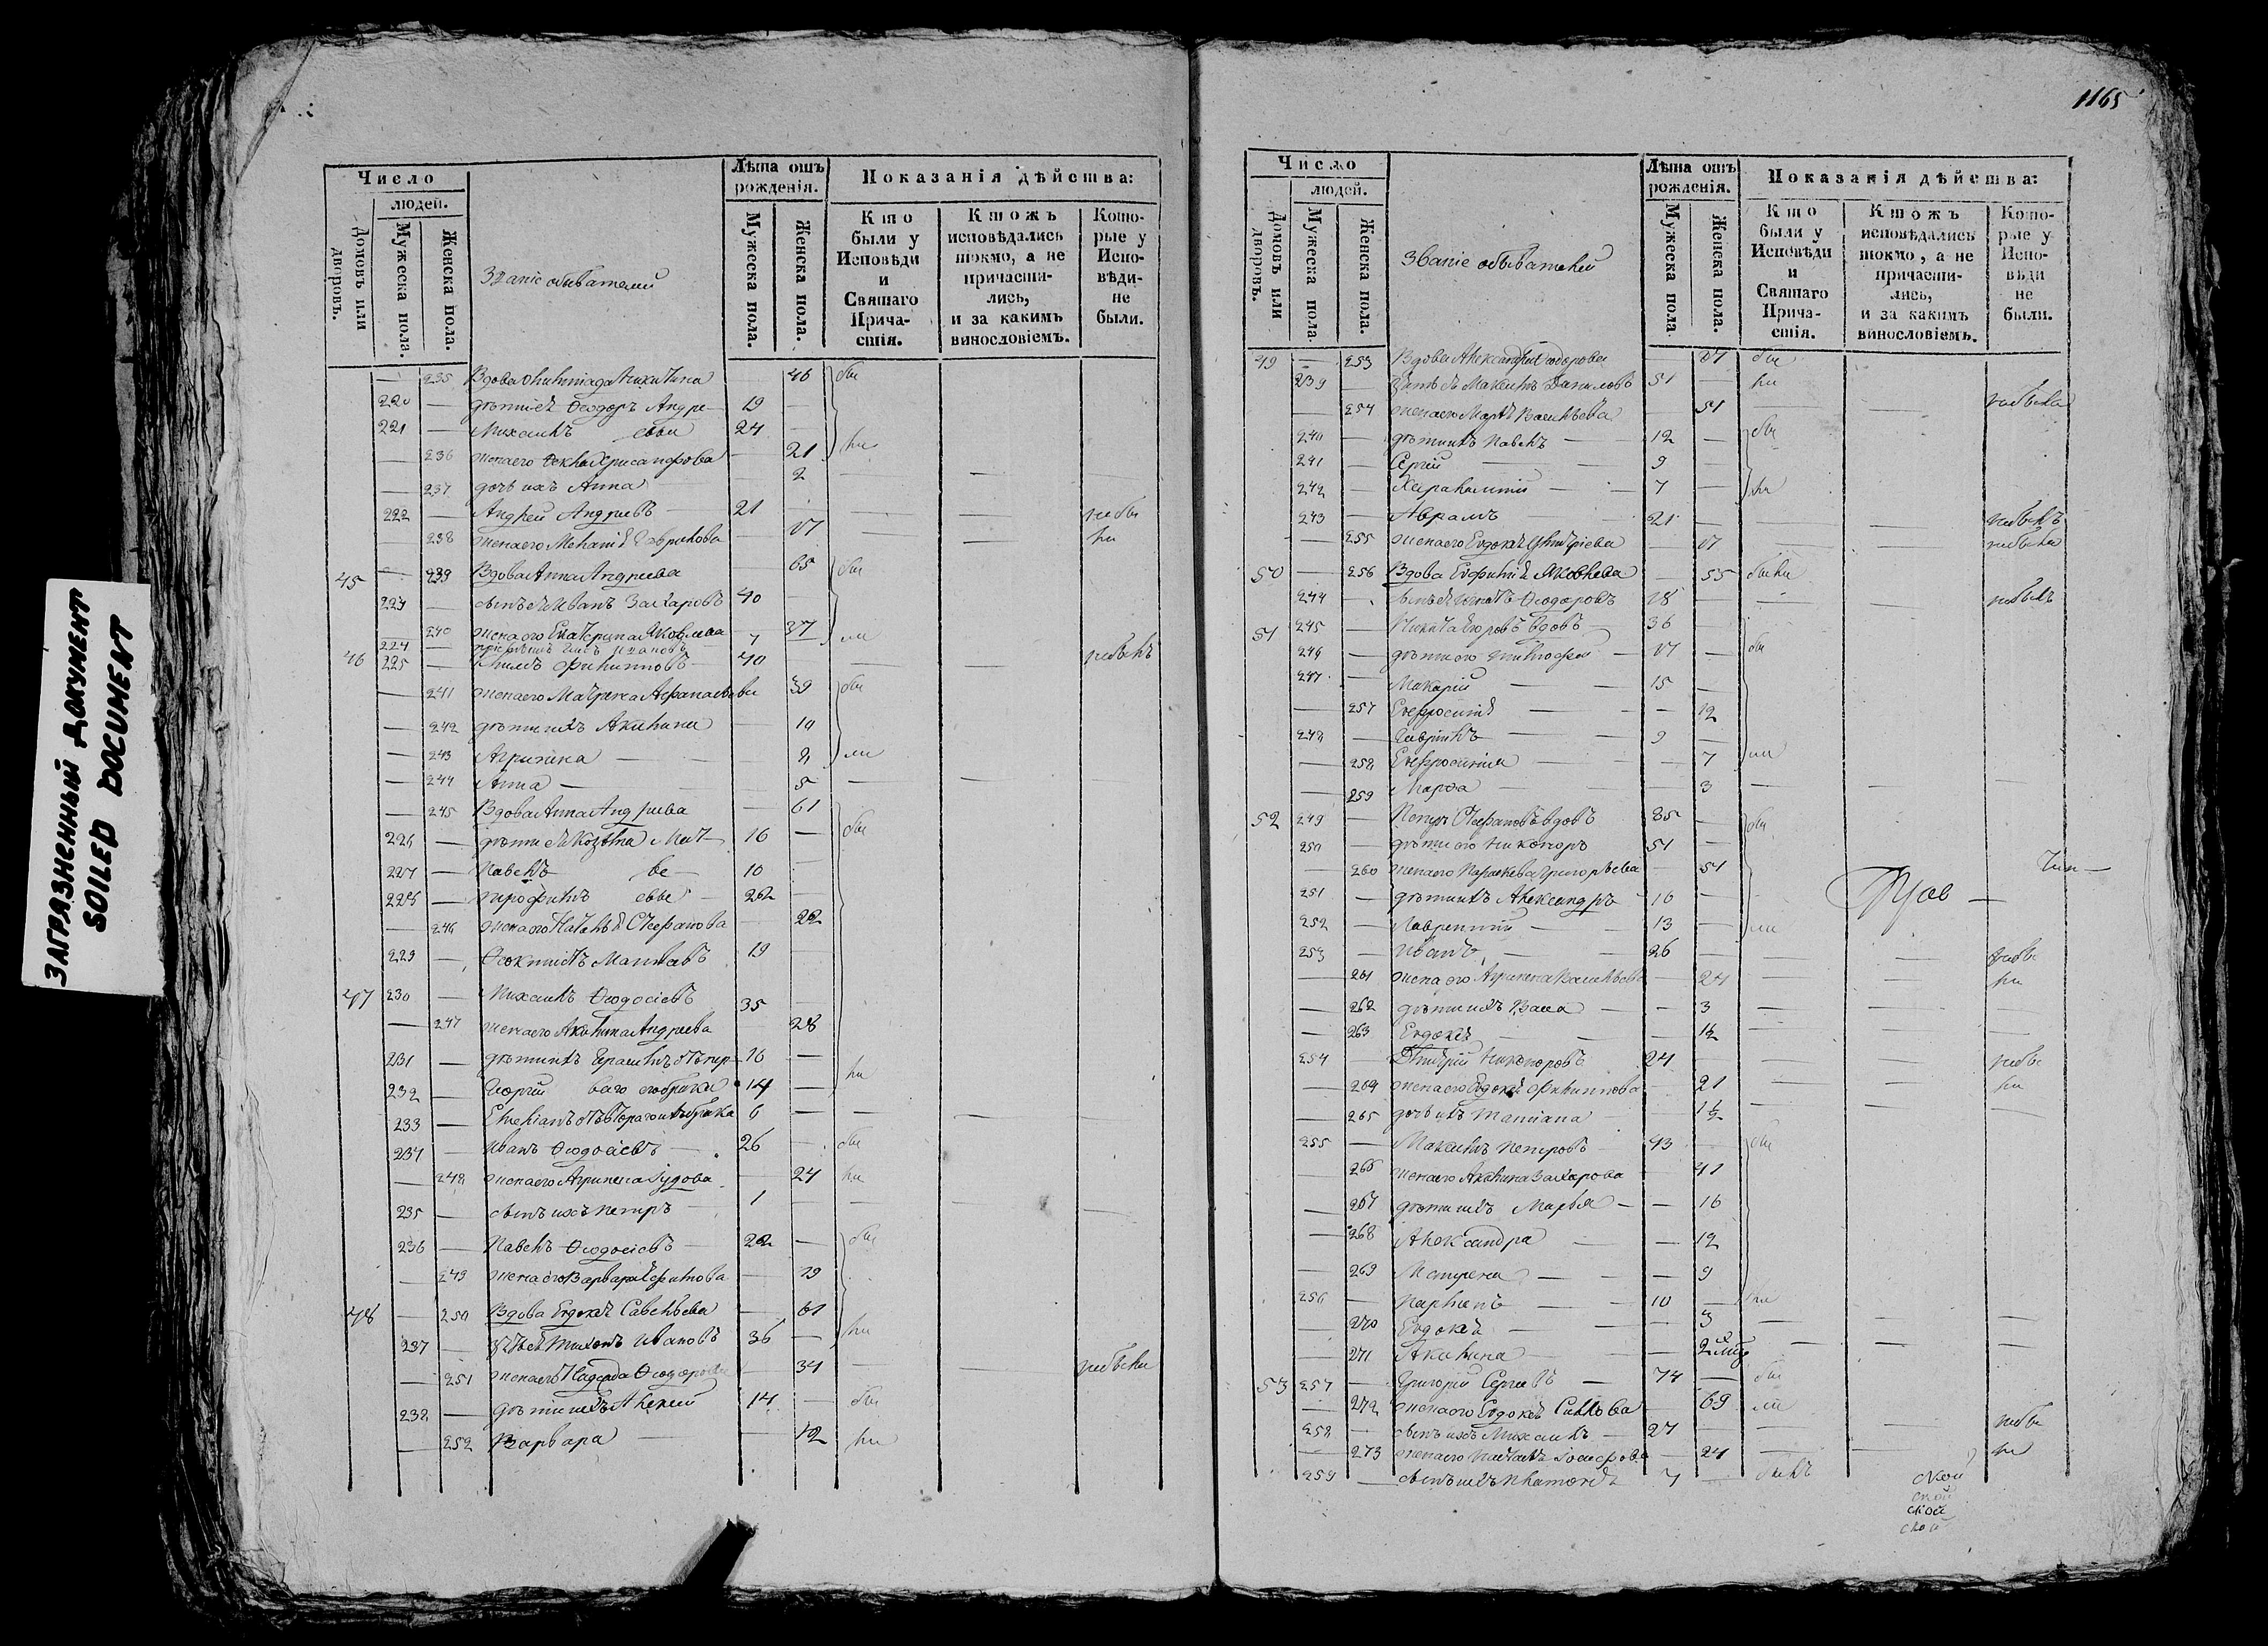 ЗАГРЯЗНЕННЫЙ ДОКУМЕНТ
SOILED DOCUMENT
Число
людей.
Домовъ или дворовъ.
Мужеска пола.
Женска пола.
Званіе обывателей
Лѣта отъ рожденія.
Мужеска пола.
Женска пола.
Показанія дѣйства:
Кто были у Исповѣди и Святаго Причастія.
Ктожъ исповѣдались токмо, а не причастились, и за какимъ винословіемъ.
Которые у Исповѣди не были.
— 235 Вдова Никитина — 46 бы
220 — дѣти ея Ѳеодоръ Андре- 19 —
221 — Михаилъ евы 24 —
— 236 жена его Ѳекла Хрисанфова — 21 ли
— 237 дочь ихъ Анна — 2 — —
222 — Андрей Андреевъ 21 — — — небы
— 238 жена его Меланія Гаврилова — — — ли
45 — 239 Вдова Анна Андреева — 65 бы
223 — сынъ ея Иванъ Захаровъ 40 —
— 240 жена его Екатерина Яковлева — 37 ли
224 — Ивановъ 7
46 225 — Филипповъ 40 — — — небылъ
— 241 жена его Матрена Афанасьева 39 бы
— 242 дѣти ихъ Акилина — 10
— 243 Агрипина — — ли
— 244 Анна — 5 — —
— 245 Вдова Анна Андреева — 61 бы
226 — дѣти ея Козьма Мат- 16 —
227 — Павелъ ве- 10 —
228 — Трофимъ евы 22 —
— 246 жена его Наталья Стефанова 22
229 — Ѳеоктистъ Матвѣевъ 19 —
47 230 — Михаилъ Ѳеодосіевъ 35 —
— 247 жена его Акилина Андреева — 28
231 — дѣти ихъ Герасимъ отъ пер- 16 —
232 — Георгій ваго брака 14 — ли
233 — Емеліанъ отъ втораго брака 6 — — —
234 — Иванъ Ѳеодосіевъ 26 — бы
— 248 жена его Агрипена — 24 ли
235 — сынъ ихъ Петръ 1 — — —
236 — Павелъ Ѳеодосіевъ 22 — бы
— 249 жена его Варвара Ефимова — 19
48 — 250 Вдова Евдокія Савельева — 61
237 — Тихонъ Ивановъ 36 — ли
— 251 жена его Надежда Ѳеодорова — 34 — — небыла
238 — дѣти ихъ Алексей 14 — бы
— 252 Варвара — 12 ли
1165
Число
людей.
Домовъ или дворовъ.
Мужеска пола
Женска пола.
Званіе обывателей
Лѣта отъ рожденія.
Мужеска пола
Женска пола.
Показанія дѣйства:
Кто были у Исповѣди и Святаго Причастія.
Ктожъ исповѣдались токмо, а не причастились, и за какимъ винословіемъ.
Которые у Исповѣди не были.
49 — 253 Вдова Александра Ѳеодорова — бы
239 — зять ея Максимъ Даниловъ 51 — ли
— 254 жена его Марѳа Васильева — 51 — небыла
240 — дѣти ихъ Павелъ — 12 — бы
241 — Сергій 9 —
242 — Харалампій 7 — ли
243 — Аврамъ 21 — — небылъ
— 255 жена его Евдокія Дмитріева — — — небыла
50 — 256 Вдова Евфимія Яковлева — 55 была
244 — сынъ ея Игнатъ Ѳеодоровъ — — — небылъ
51 245 — Никита вдовъ 36 — бы
246 — дѣти его Тимофей —
247 — Макарій 15 —
— 257 Евфросинія — 12
248 — Гавріилъ 9 —
— 258 Евфросинія — 7 ли
— 259 Марѳа — 3 — — —
52 249 — Петръ Стефановъ вдовъ 85 — бы
250 — дѣти его Никаноръ 51 —
— 260 жена его Параскева Григорьева 51
251 — дѣти ихъ Александръ 16 —
252 — Лаврентій 13 — ли
253 — Иванъ 26 — — — небы
— 261 жена его Агрипена Васильева — 24 — — ли
— 262 дѣти ихъ Васса — 3 — — —
— 263 Евдокія — 1½ — — —
254 — Дмитрій Никаноровъ 24 — — — небы
— 264 жена его Евдокія Филиппова — 21 — — ли
— 265 дочь ихъ Татіана — 1½ — — —
255 — Максимъ Петровъ 43 — бы
— 266 жена его Акилина Захарова — 41
— 267 дѣти ихъ Марья — 16
— 268 Александра — 12
— 269 Матрена — 9
256 — Парѳенъ 10 — ли
— 270 Евдокія — 3 — — —
— 271 Акилина — 2 — — —
53 257 — Григорій Сергіевъ 74 — бы
— 272 жена его Евдокія — 69 ли
258 — сынъ ихъ Михаилъ 27 — — небы
— 273 жена его Наталья Іосифова — 24 — — ли
259 — сынъ ихъ Платонъ 7 — былъ
ской
ской
ской
ской